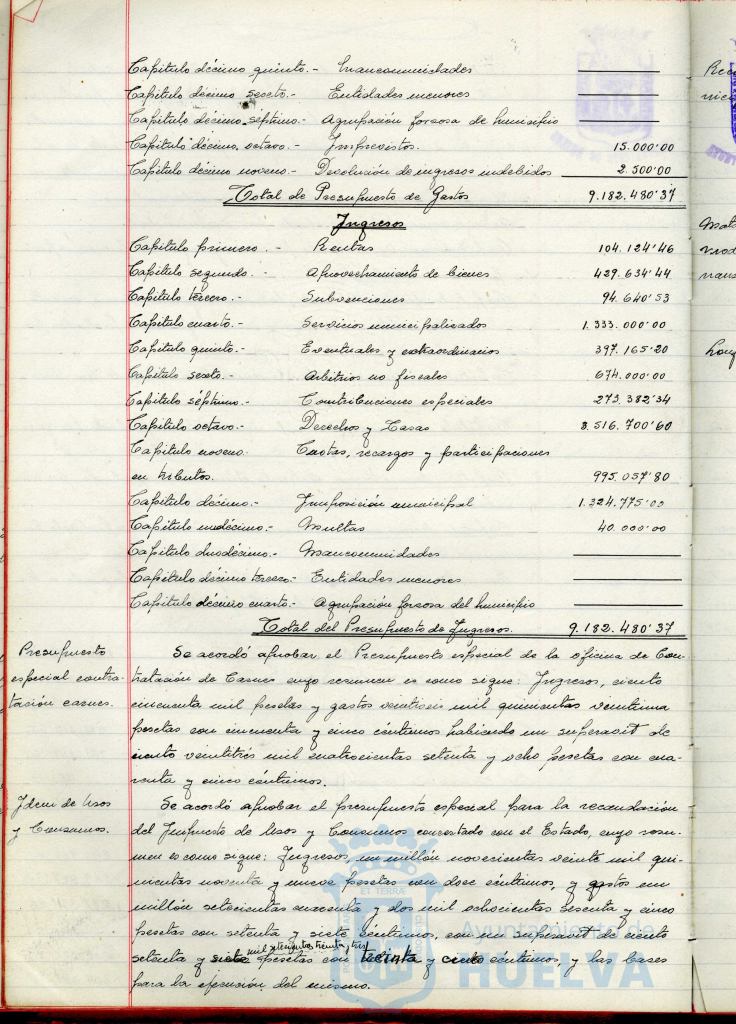 Capítulo décimo quinto.- Mancomunidades
Capítulo décimo sexto.- Entidades menores
Capítulo décimo séptimo.- Agrupación forzosa de Municipio
Capítulo décimo octavo.- Imprevistos. 15.000'00
Capítulo décimo noveno.- Devolución de ingresos indebidos 2.500'00
Total de Presupuesto de Gastos 9.182.480'37
Ingresos
Capítulo primero.- Rentas 104.124'46
Capítulo segundo.- Aprovechamiento de bienes 429.634'44
Capítulo tercero.- Subvenciones 94.640'53
Capítulo cuarto.- Servicios municipalizados 1.333.000'00
Capítulo quinto.- Eventuales y extraordinarios 397.165'20
Capítulo sexto.- Arbitrios no fiscales 674.000'00
Capítulo séptimo.- Contribuciones especiales 273.382'34
Capítulo octavo.- Derechos y Tasas 3.516.700'60
Capítulo noveno. Cuotas, recargos y participaciones
en tributos. 995.057'80
Capítulo décimo.- Imposición municipal 1.324.775'00
Capítulo undécimo.- Multas 40.000'00
Capítulo duodécimo.- Mancomunidades
Capítulo décimo tercero.- Entidades menores
Capítulo décimo cuarto.- Agrupación forzosa del Municipio
Total del Presupuesto de Ingresos. 9.182.480'37
Presupuesto
especial contra-
tación carnes.
Se acordó aprobar el Presupuesto especial de la oficina de Con-
tratación de Carnes cuyo resumen es como sigue: Ingresos, ciento
cincuenta mil pesetas y gastos veintiseis mil quinientas veintiuna
pesetas con cincuenta y cinco céntimos habiendo un superavit de
ciento veintitrés mil cuatrocientas setenta y ocho pesetas con cua-
renta y cinco céntimos.
Idem de Usos
y Consumos.
Se acordó aprobar el presupuesto especial para la recaudación
del Impuesto de Usos y Consumos concertado con el Estado, cuyo resu-
men es como sigue: Ingresos, un millón novecientas veinte mil qui-
nientas noventa y nueve pesetas con doce céntimos, y gastos un
millón setecientas cuarenta y dos mil ochocientas sesenta y cinco
pesetas con setenta y siete céntimos, con un superavit de ciento
setenta y siete mil setecientas treinta y tres pesetas con treinta y cinco céntimos, y las bases
para la ejecución del mismo.
Ayuntamiento de
HUELVA